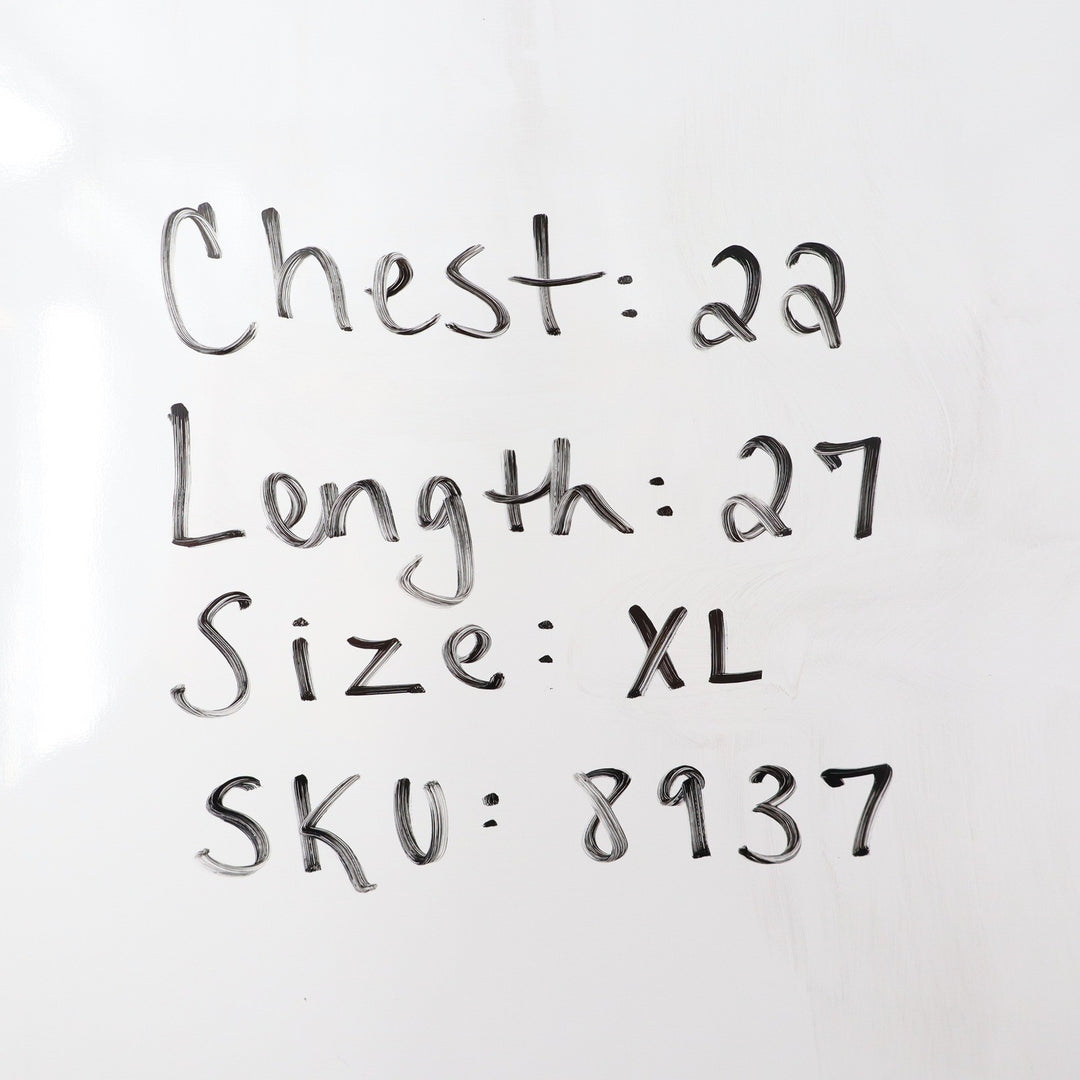 Chest: 22
Length: 27
Size: XL
SKU: 8937